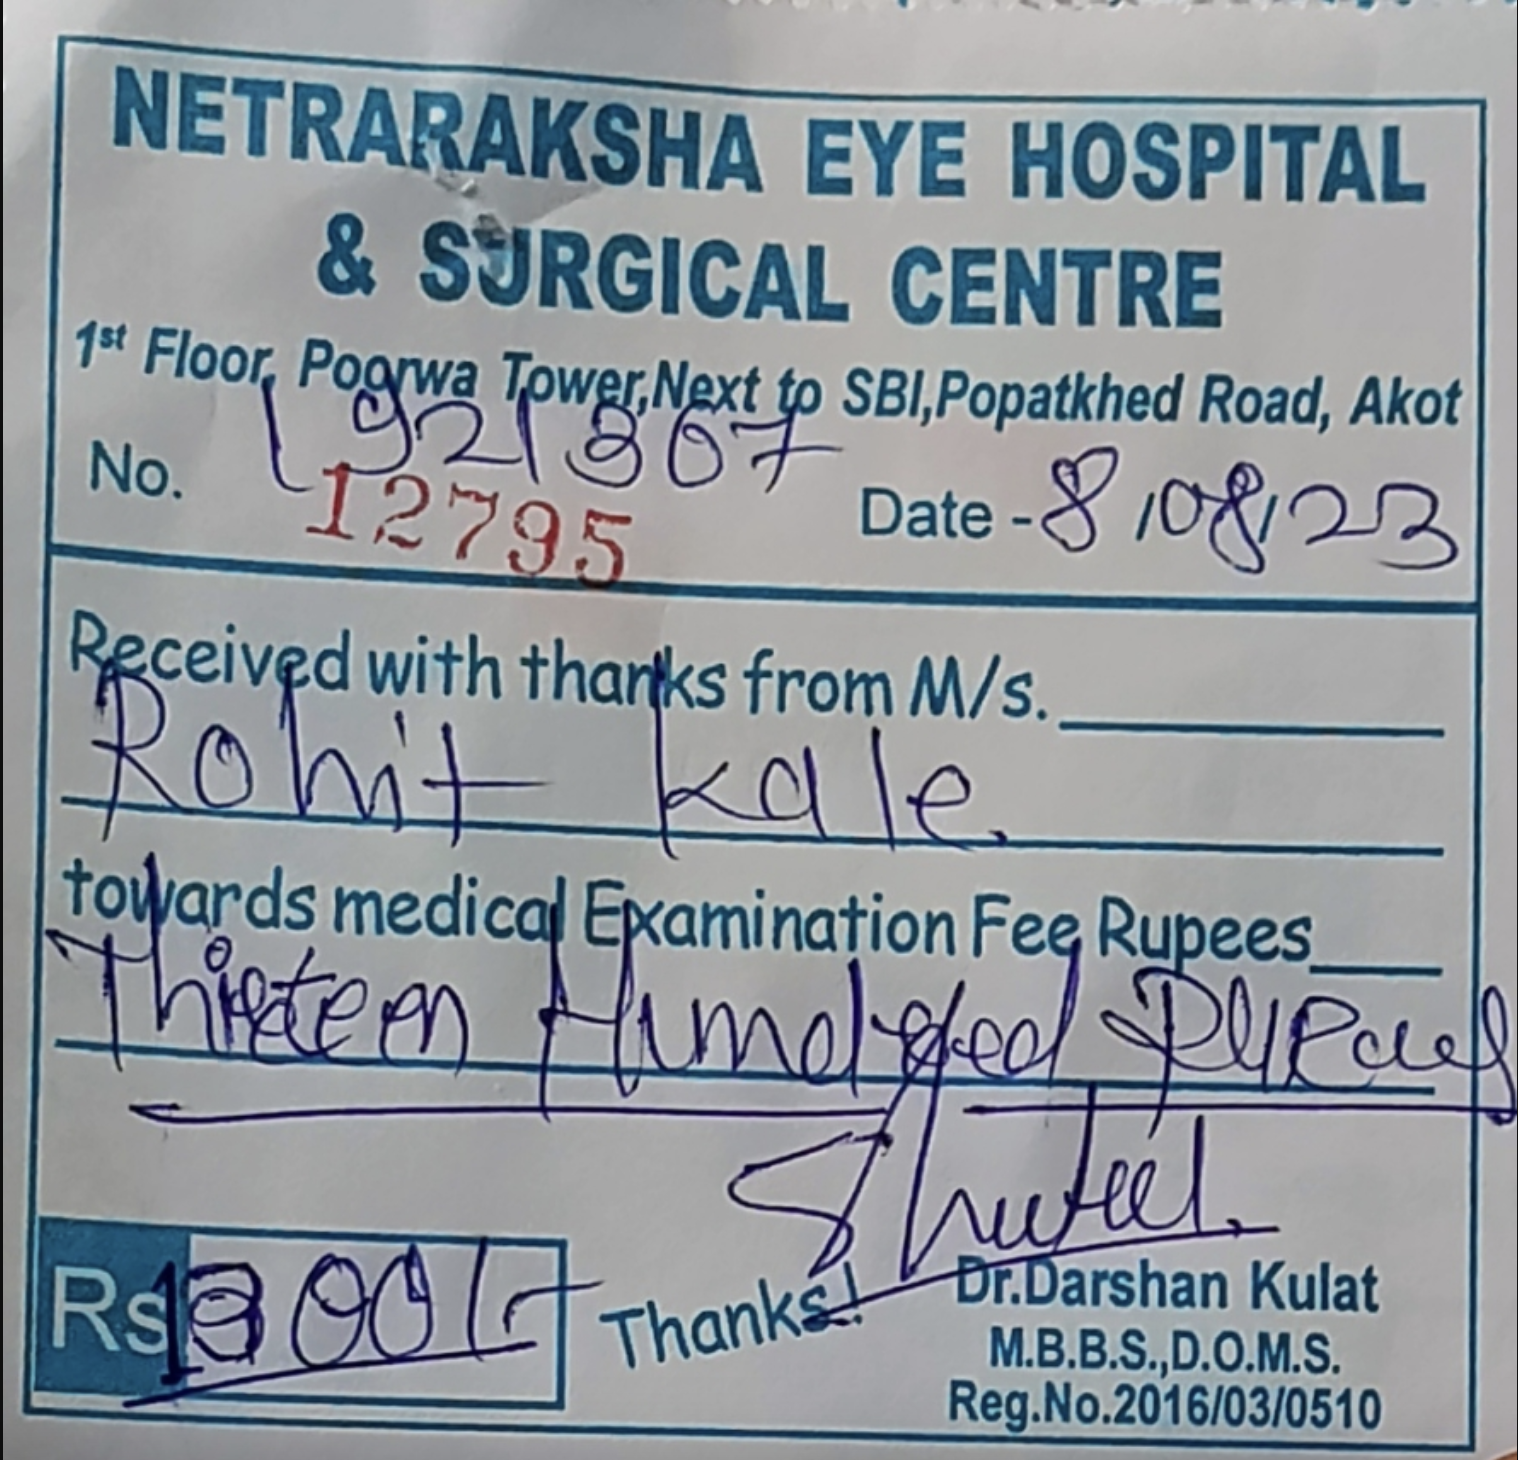 NETRARAKSHA EYE HOSPITAL
& SURGICAL CENTRE
1st Floor, Poorwa Tower,Next to SBI,Popatkhed Road, Akot
No. 1921367
12795 Date - 8/08/23
Received with thanks from M/s.
Rohit Kale
towards medical Examination Fee Rupees
Thirteen Hundred
Rs 1300/- Thanks!
Dr.Darshan Kulat
M.B.B.S.,D.O.M.S.
Reg.No.2016/03/0510